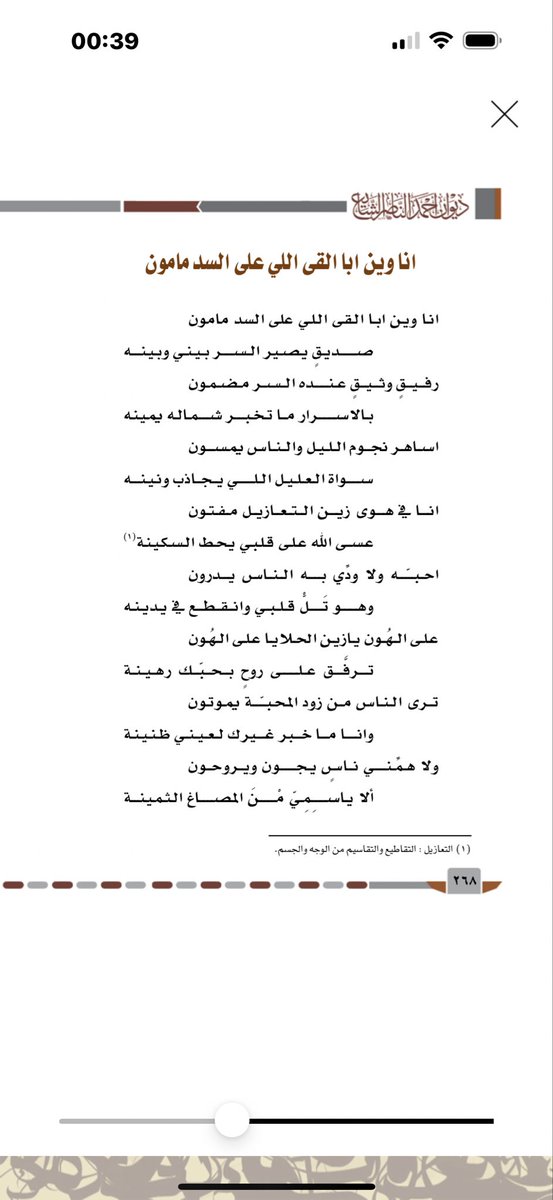 00:39
ديوان احمد الناصر الشايع
انا وين ابا القى اللي على السد مامون
انا وين ابا القى اللي على السد مامون
صــديقٍ يصير السـر بيني وبينـه
رفيـقٍ وثيـقٍ عنـده السـر مضمون
بالاسـرار ما تخبـر شمـاله يمينه
اساهر نجوم الليل والناس يمسـون
سـواة العليل اللـي يجاذب ونينـه
انـا في هـوى زيـن التعازيـل مفتون
عسـى الله على قلبي يحط السكينة(١)
احبـّه ولا ودّي بـه الناس يـدرون
وهـو تَـلُّ قلبـي وانقطـع في يدينه
على الهُون يازين الحلايا على الهُون
تـرفَّـق علـى روحٍ بـحبّـك رهينـة
تـرى الناس مـن زود المحبـّة يموتون
وانـا مـا خبـر غيـرك لعينـي ظنينة
ولا همّنـي نـاسٍ يجـون ويـروحون
ألا ياسـمِيّ مْـنَ المصـاغ الثمينـة
(١) التعازيل : التقاطيع والتقاسيم من الوجه والجسم.
٢٦٨